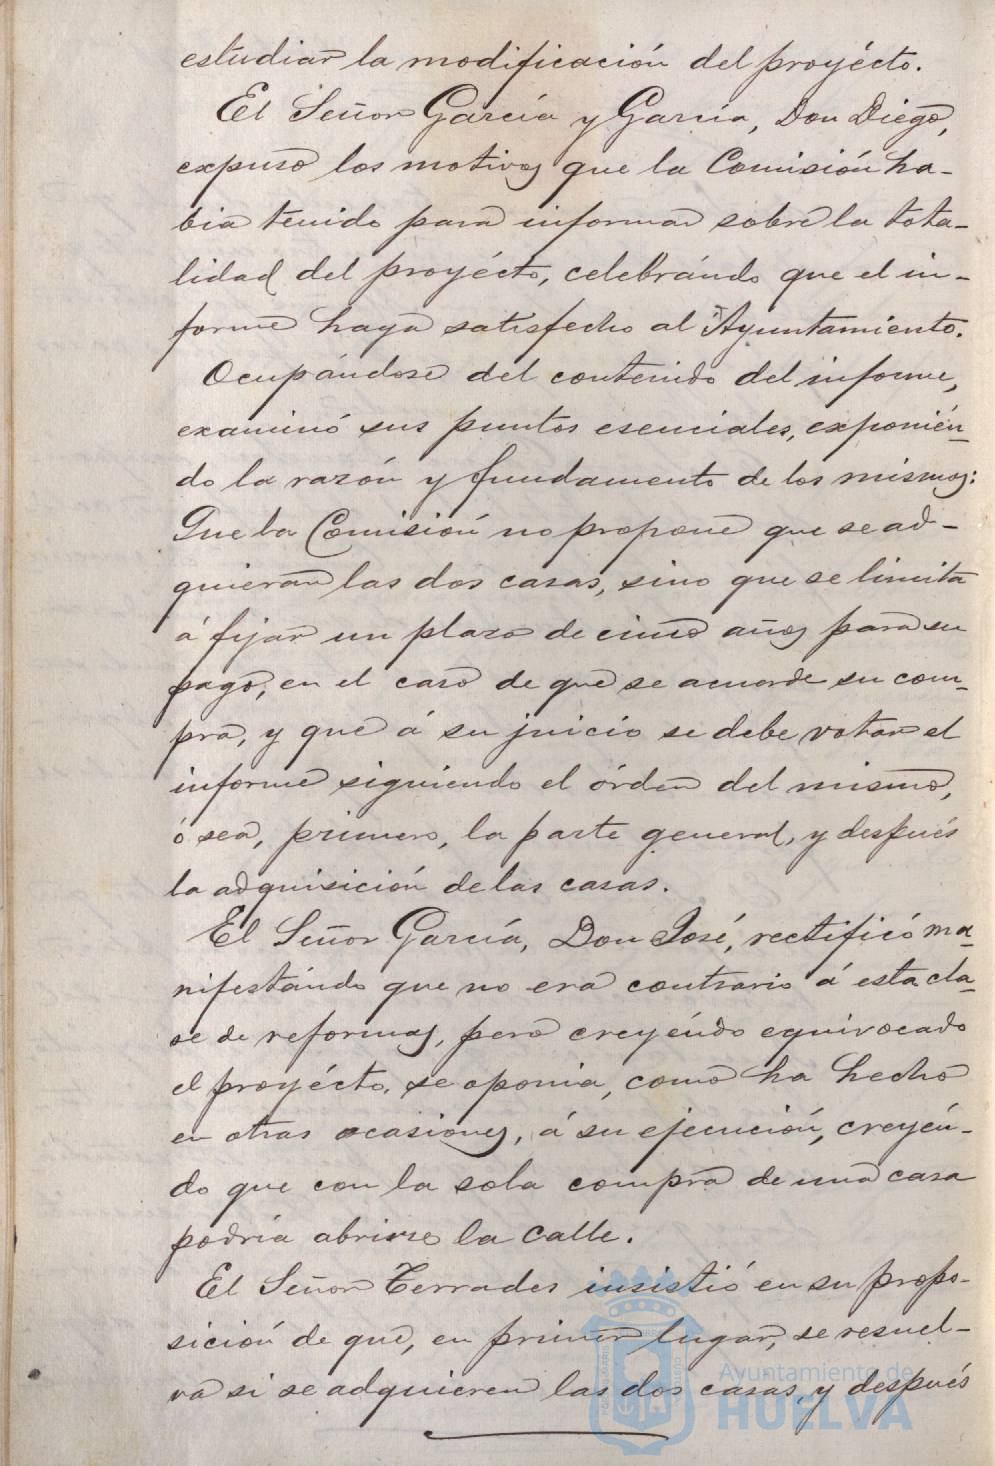 estudiar la modificación del proyécto.
El Señor García y García, Don Diego,
expuso los motivos que la Comisión ha-
bia tenido para informar sobre la tota-
lidad del proyécto, celebrándo que el in-
forme haya satisfecho al Ayuntamiento.
Ocupándose del contenido del informe,
examinó sus puntos esenciales, exponién-
do la razón y fundamento de los mismos:
Que la Comisión no propone que se ad-
quieran las dos casas, sino que se limita
á fijar un plazo de cinco años para su
pago, en el caso de que se acuerde su com-
pra, y que á su juicio se debe votar el
informe siguiendo el órden del mismo,
ó sea, primero, la parte general, y después
la adquisición de las casas.
El Señor García, Don José, rectificó ma-
nifestándo que no era contrario á esta cla-
se de reformas, pero creyéndo equivocado
el proyécto, se oponia, como ha hecho
en otras ocasiones, á su ejecución, creyén-
do que con la sola compra de una casa
podría abrirse la calle.
El Señor Terrades insistió en su propo-
sición de que, en primer lugar, se resuel-
va si se adquieren las dos casas, y después
Ayuntamiento de
HUELVA